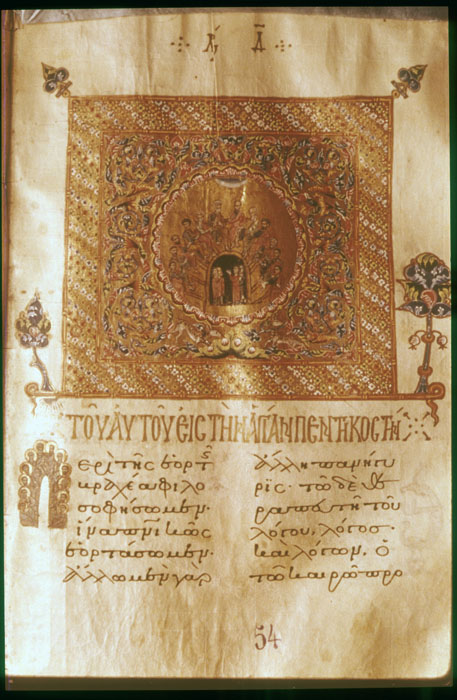 Λό Δ
ΤΟΥ ΑΥΤΟΥ ΕΙΣ ΤΗΝ ΑΓΙΑΝ ΠΕΝΤΗΚΟΣΤΗΝ
Περὶ τῆς ἑορτῆς
βραχέα φιλο
σοφήσωμεν·
ἵνα πνικῶς
ἑορτάσωμεν·
ἄλλω μὲν γὰρ
ἄλλη πανήγυ
ρις· τῶ δὲ θε
ραπευτῆ τοῦ
λόγου, λόγος·
καὶ λόγων, ὁ
τῶ καιρῶ προ
54